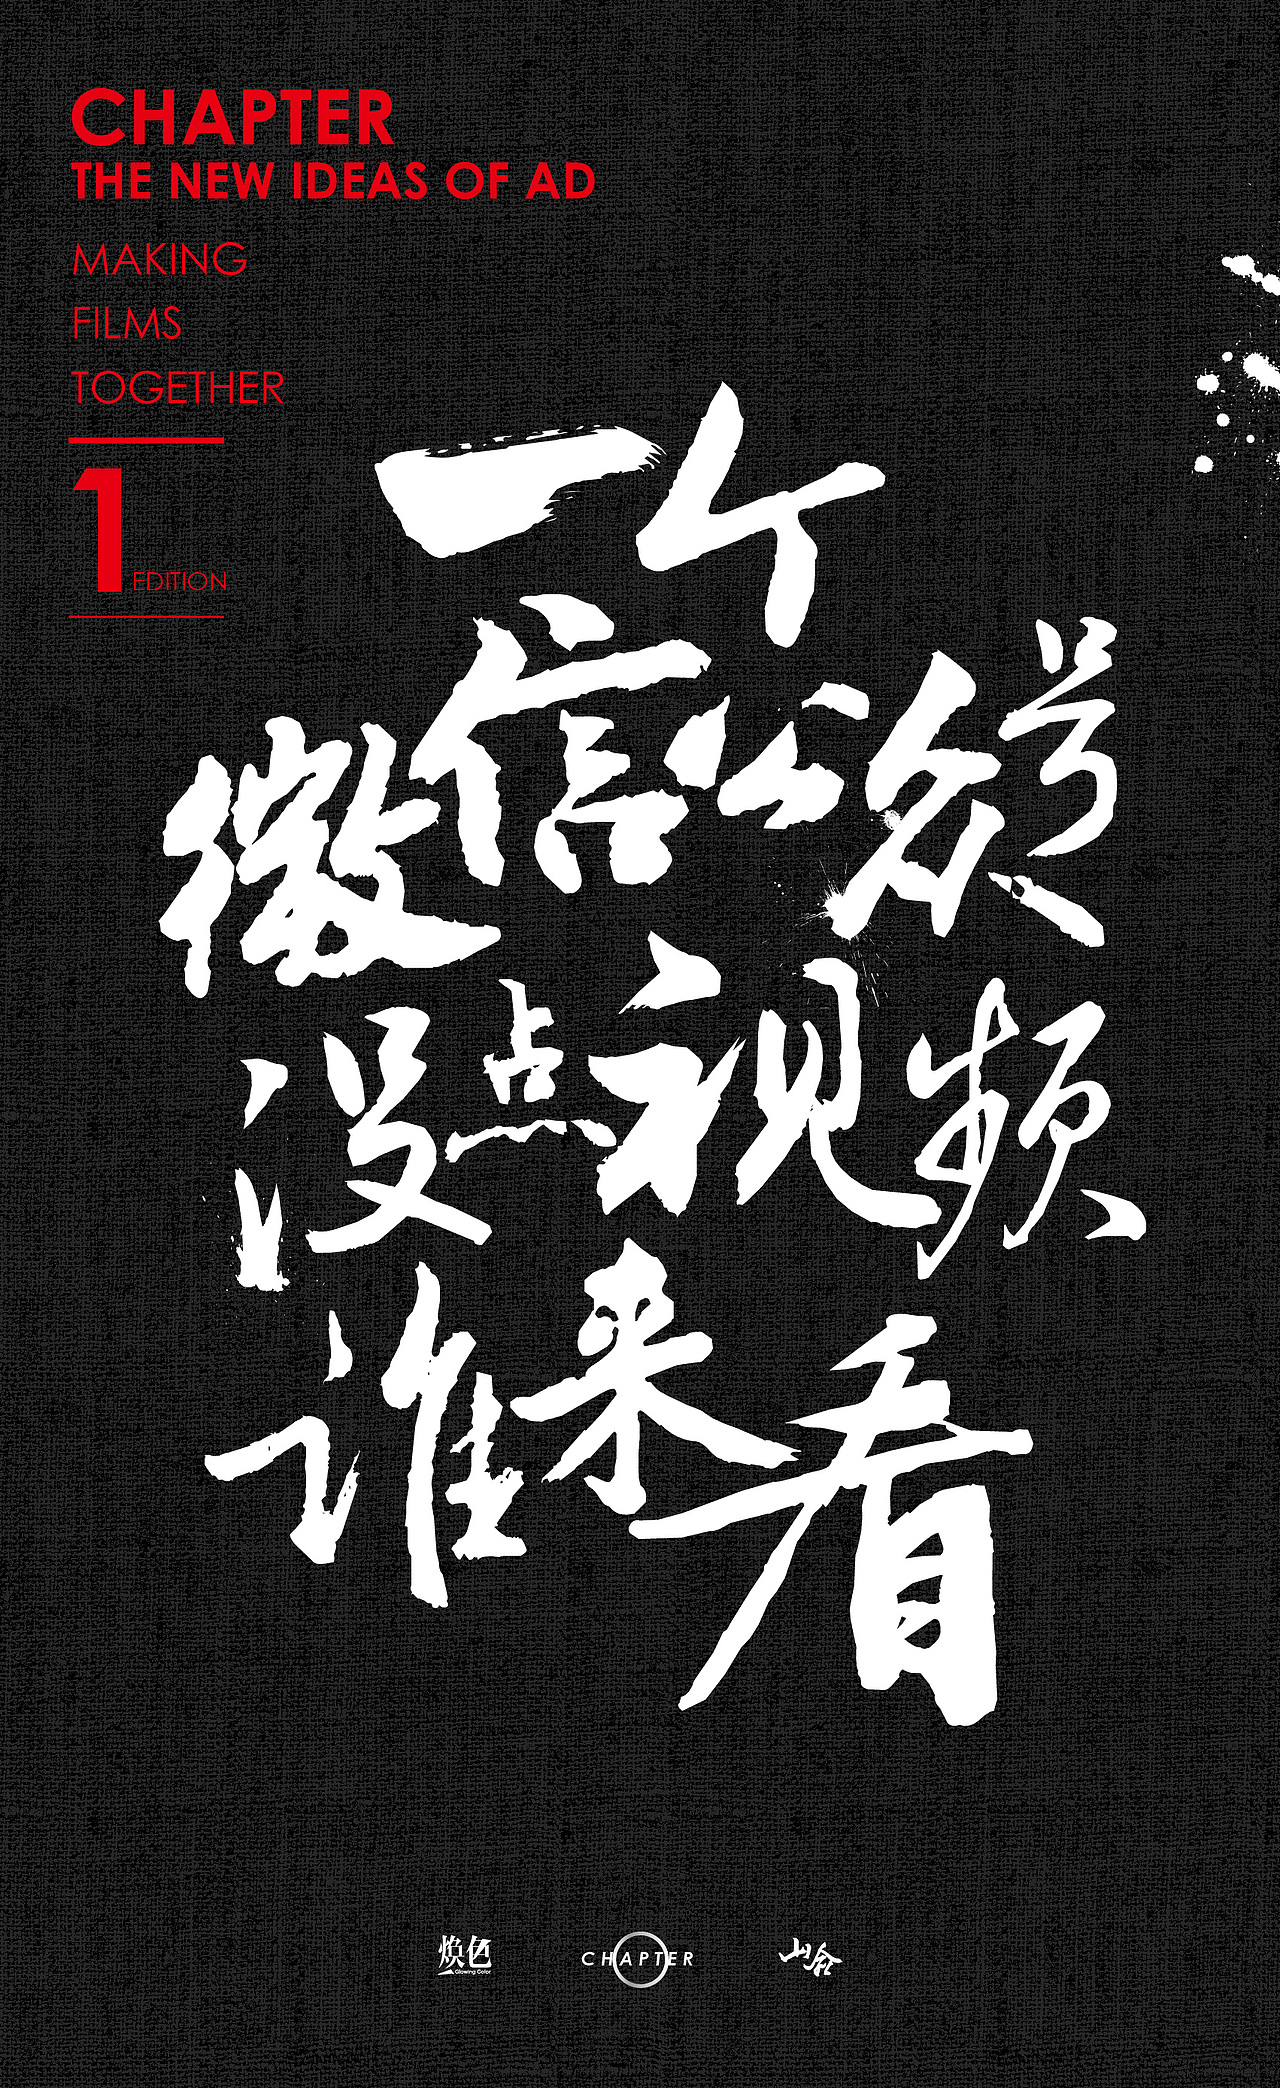 CHAPTER
THE NEW IDEAS OF AD
MAKING
FILMS
TOGETHER
1 EDITION
一个
微信公众号
没点视频
谁来看
焕色
Glowing Color
CHAPTER